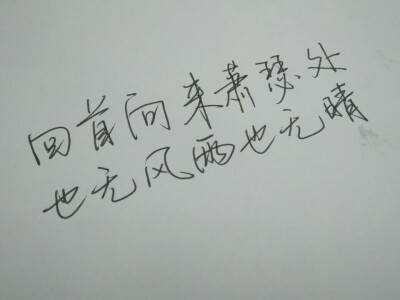 回首向来萧瑟处
也无风雨也无晴